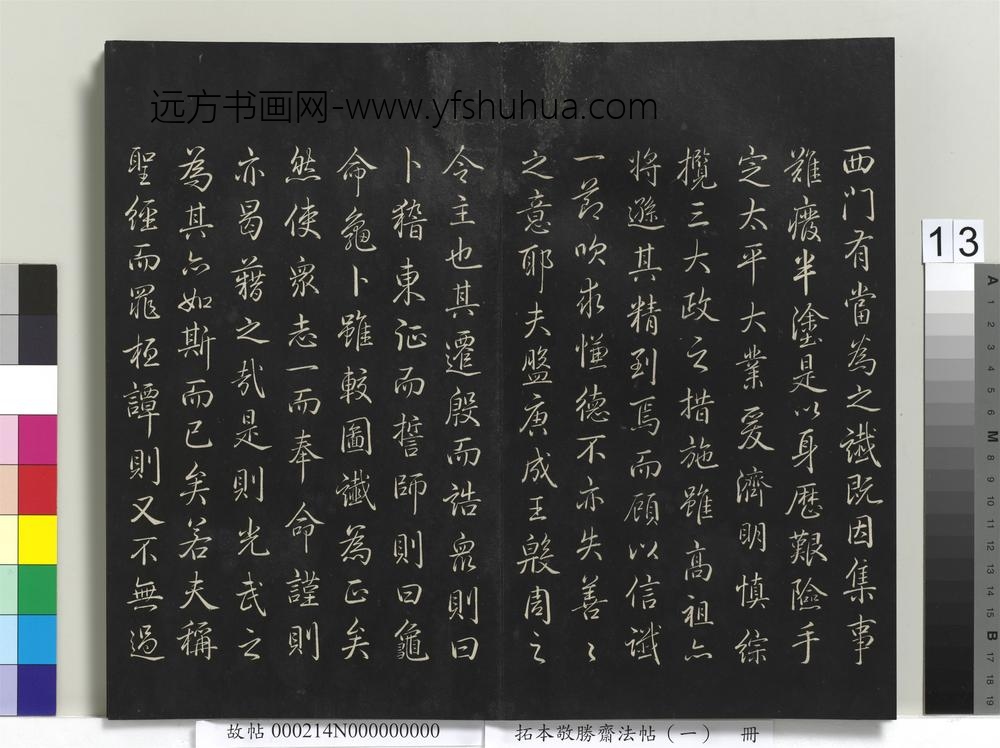 远方书画网-www.yfshuhua.com
西门有當為之讖既因集事
難癈半塗是以身歷艱險手
定太平大業爰濟明慎綜
攬三大政之措施雖高祖亦
將遜其精到焉而顧以信讖
一節吹求慊德不亦失善〻
之意耶夫盤庚成王殷周之
令主也其遷殷而誥衆則曰
卜稽東征而誓師則曰龜
命龜卜雖較圖讖為正矣
然使衆志一而奉命謹則
亦曷藉之哉是則光武之
為其亦如斯而已矣若夫稱
聖經而罪桓譚則又不無過
13
A 1 2 3 4 5 6 M 8 9 10 11 12 13 14 15 B 17 18 19
故帖 000214N000000000
拓本敬勝齋法帖（一） 冊